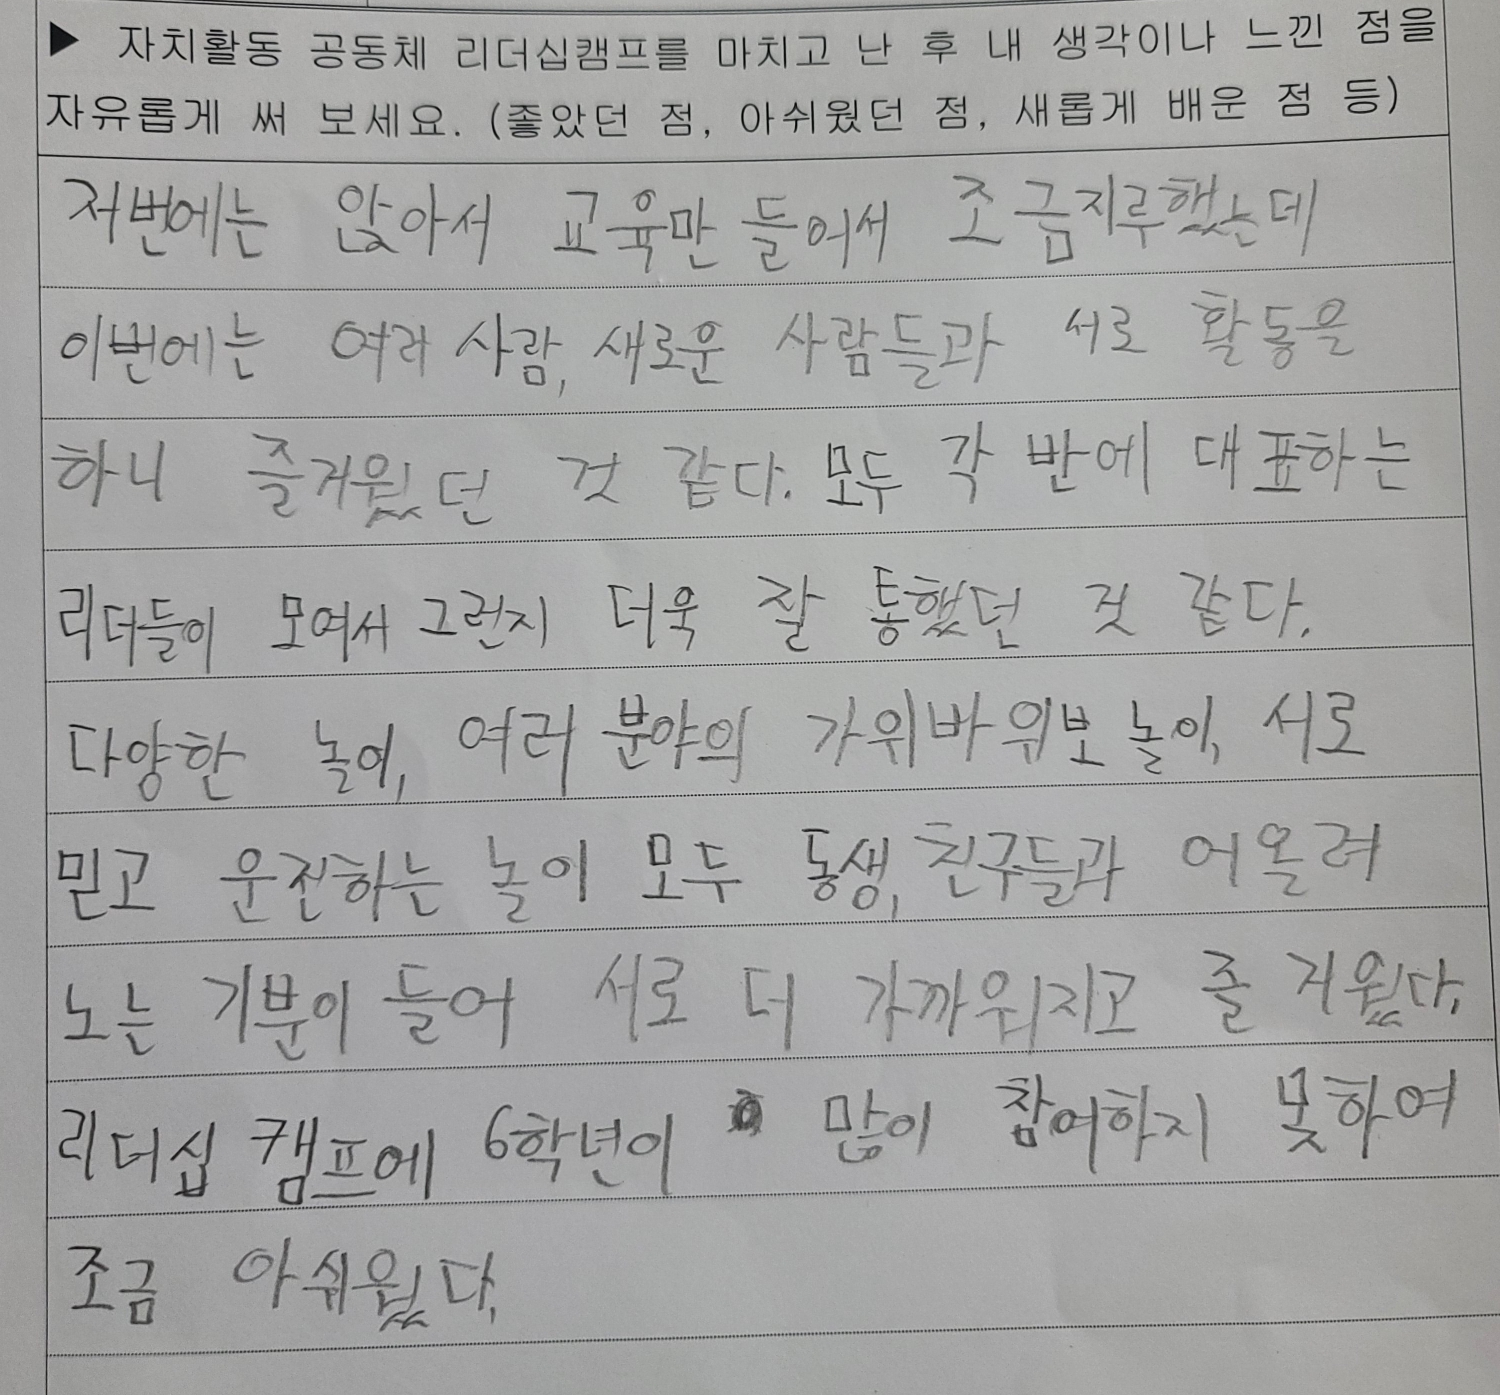 ▶ 자치활동 공동체 리더십캠프를 마치고 난 후 내 생각이나 느낀 점을
자유롭게 써 보세요. (좋았던 점, 아쉬웠던 점, 새롭게 배운 점 등)
저번에는 앉아서 교육만 들어서 조금지루했는데
이번에는 여러 사람, 새로운 사람들과 서로 활동을
하니 즐거웠던 것 같다. 모두 각 반에 대표하는
리더들이 모여서 그런지 더욱 잘 통했던 것 같다.
다양한 놀이, 여러 분야의 가위바위보 놀이, 서로
믿고 운전하는 놀이 모두 동생, 친구들과 어울려
노는 기분이 들어 서로 더 가까워지고 즐거웠다.
리더십 캠프에 6학년이 많이 참여하지 못하여
조금 아쉬웠다.